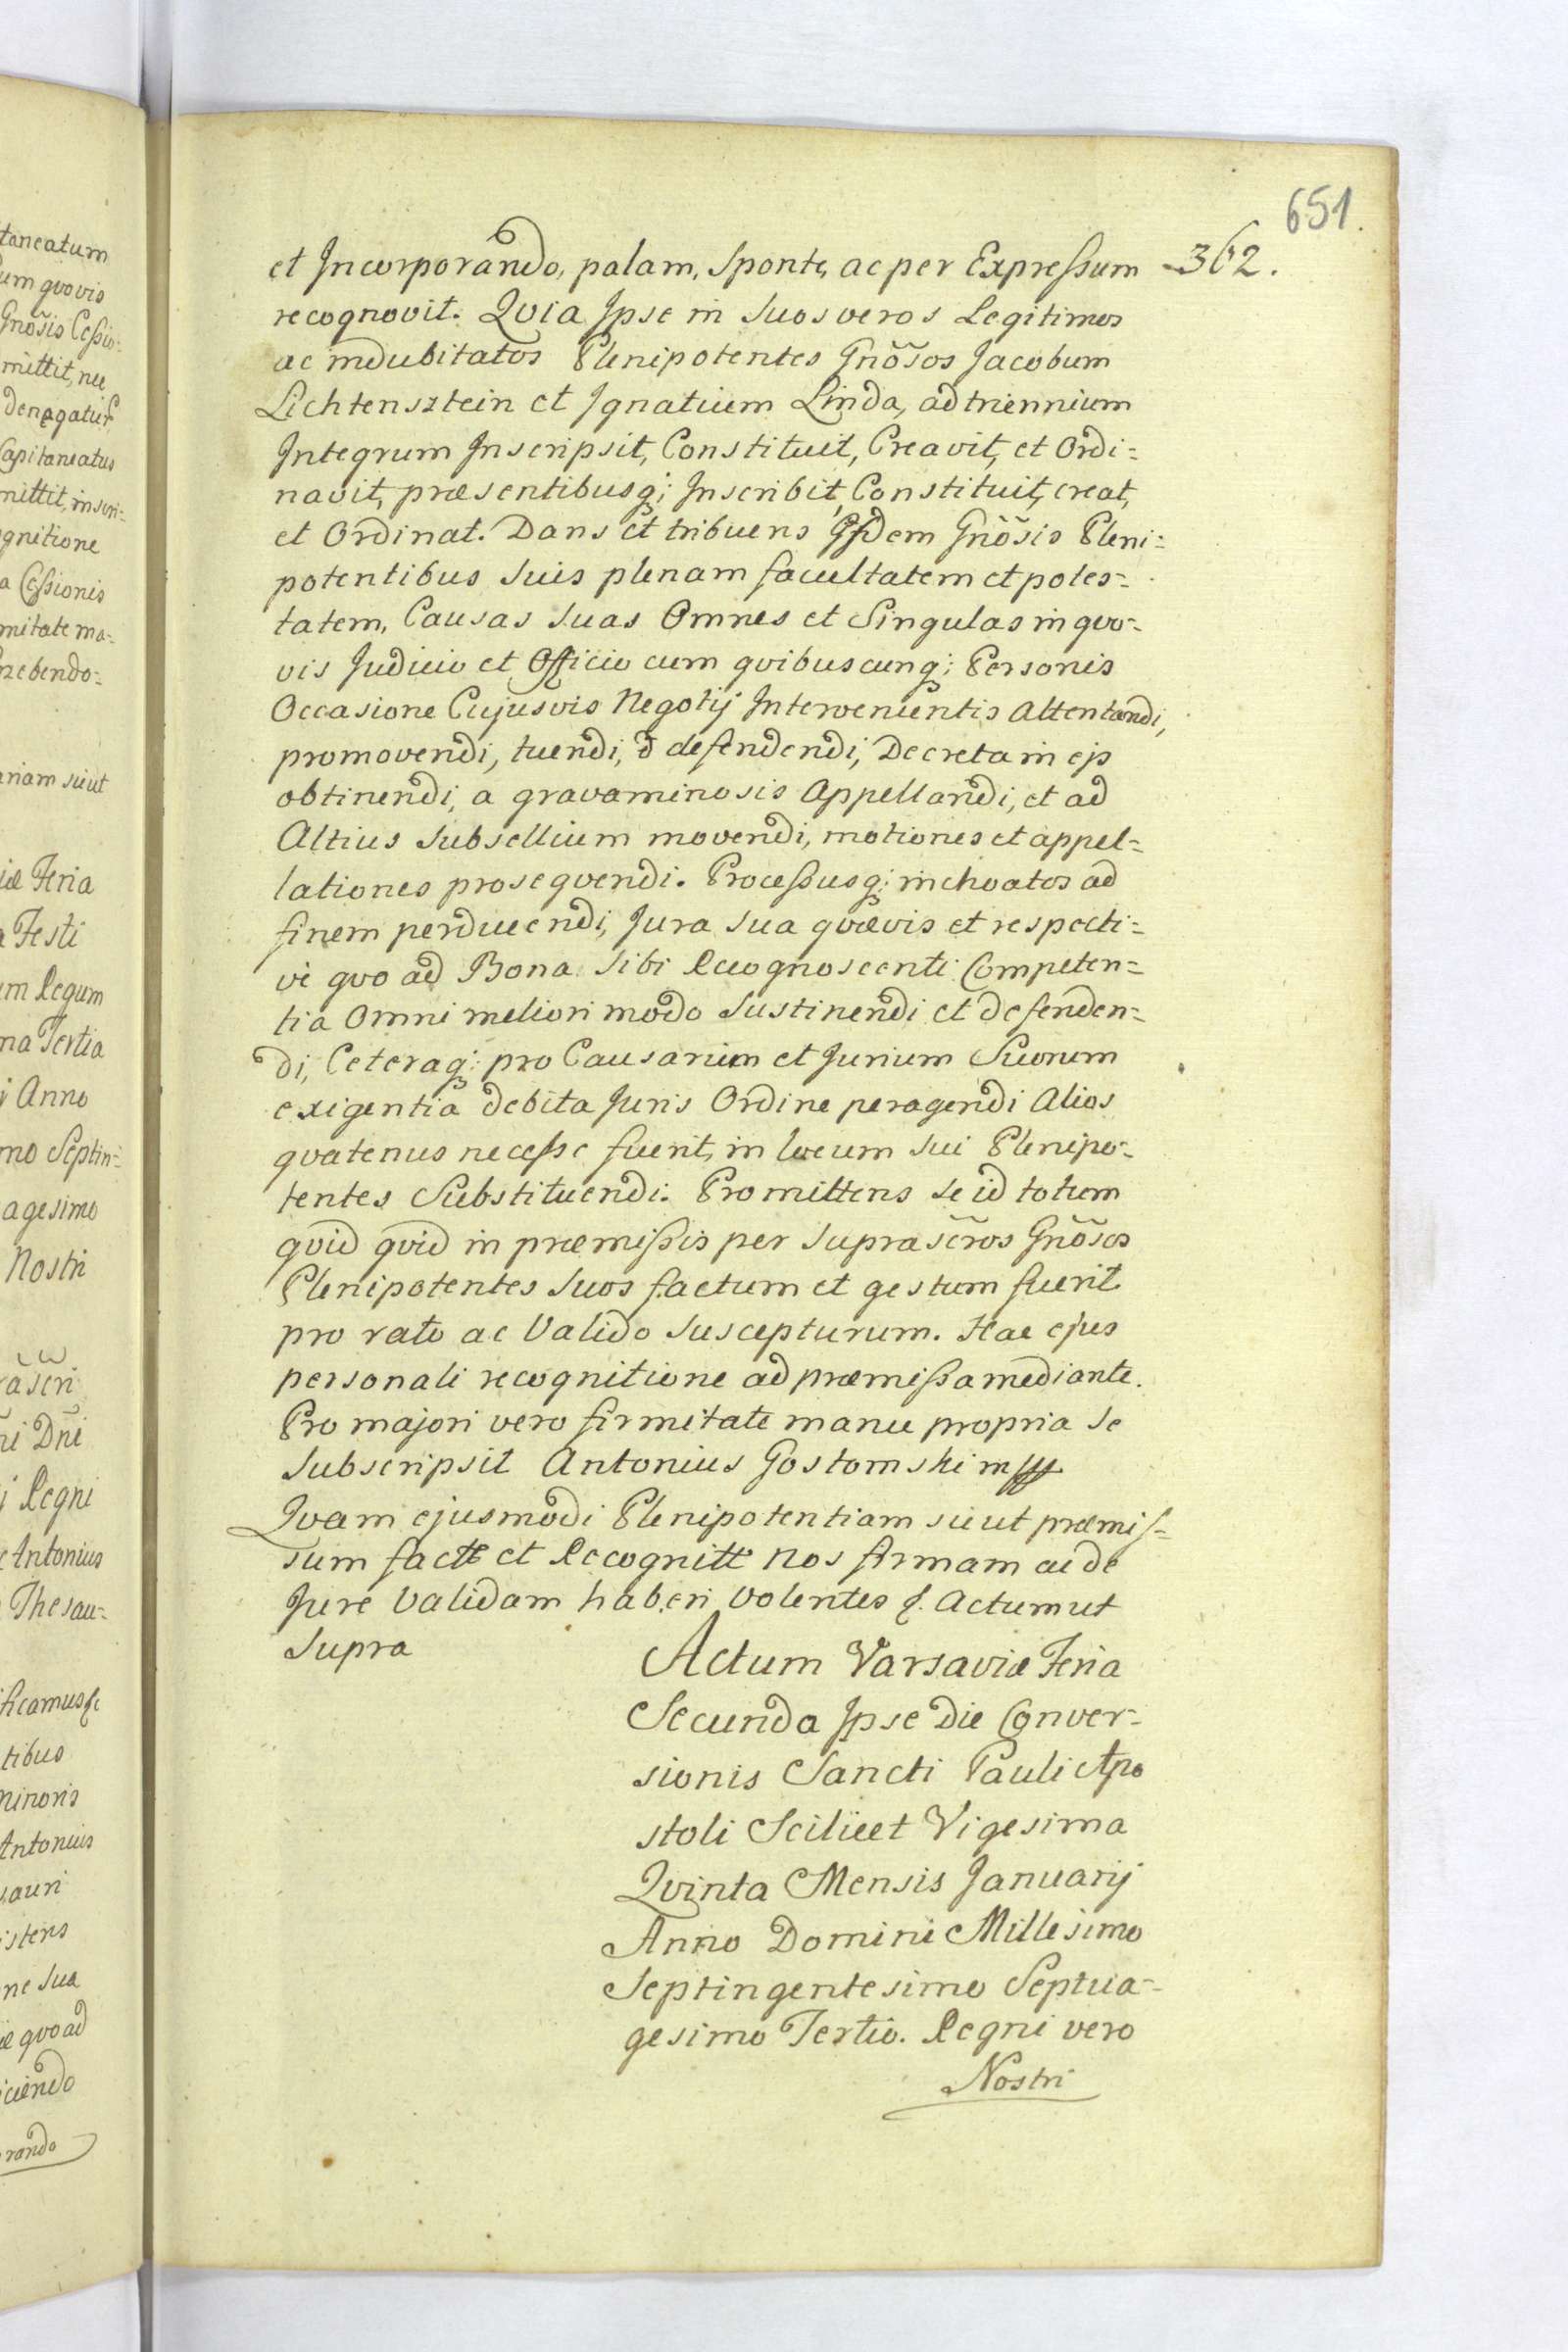 651.
362.
et Incorporando, palam, sponte, ac per Expressum
recognovit. Qvia Ipse in suos veros Legitimos
ac indubitatos Plenipotentes Gnõsos Jacobum
Lichtensztein et Ignatium Linda, ad triennium
Integrum Inscripsit, Constituit, Creavit, et Ordi=
navit, præsentibusq; Inscribit, Constituit, creat,
et Ordinat. Dans et tribuens Gnõsis Pleni=
potentibus suis plenam facultatem et potes=
tatem, Causas suas Omnes et Singulas in qvo=
vis Judicio et Officio cum qvibuscunq; Personis
Occasione Cujusvis Negotij Intervenientis Attentandi,
promovendi, tuendi, defendendi, Decreta in ejs
obtinendi, a gravaminosis Appellandi, et ad
Altius subsellium movendi, motiones et appel=
lationes proseqvendi. Processusq; inchoatos ad
finem perducendi, Jura sua qvævis et respecti=
ve qvo ad Bona sibi Recognoscenti Competen=
tia Omni meliori modo sustinendi et defenden=
di, Ceteraq; pro Causarum et Jurium Suorum
exigentia debita Juris Ordine peragendi Alios
qvatenus necesse fuerit, in locum sui Plenipo=
tentes Substituendi. Promittens se id totum
qvid qvid in præmissis per suprascr̃os Gnõsos
Plenipotentes suos factum et gestum fuerit
pro rato ac Valido suscepturum. Hac ejus
personali recognitione ad præmissa mediante.
Pro majori vero firmitate manu propria se
subscripsit Antonius Gostomski mpp
Qvam ejusmodi Plenipotentiam sicut præmis=
sum factt et Recognitt nos firmam ac de
Jure Validam haberi volentes &. Actum ut
supra
Actum Varsaviæ Feria
Secunda Ipse Die Conver=
sionis Sancti Pauli Apo
stoli Scilicet Vigesima
Qvinta Mensis Januarij
Anno Domini Millesimo
Septingentesimo Septua=
gesimo Tertio. Regni vero
Nostri